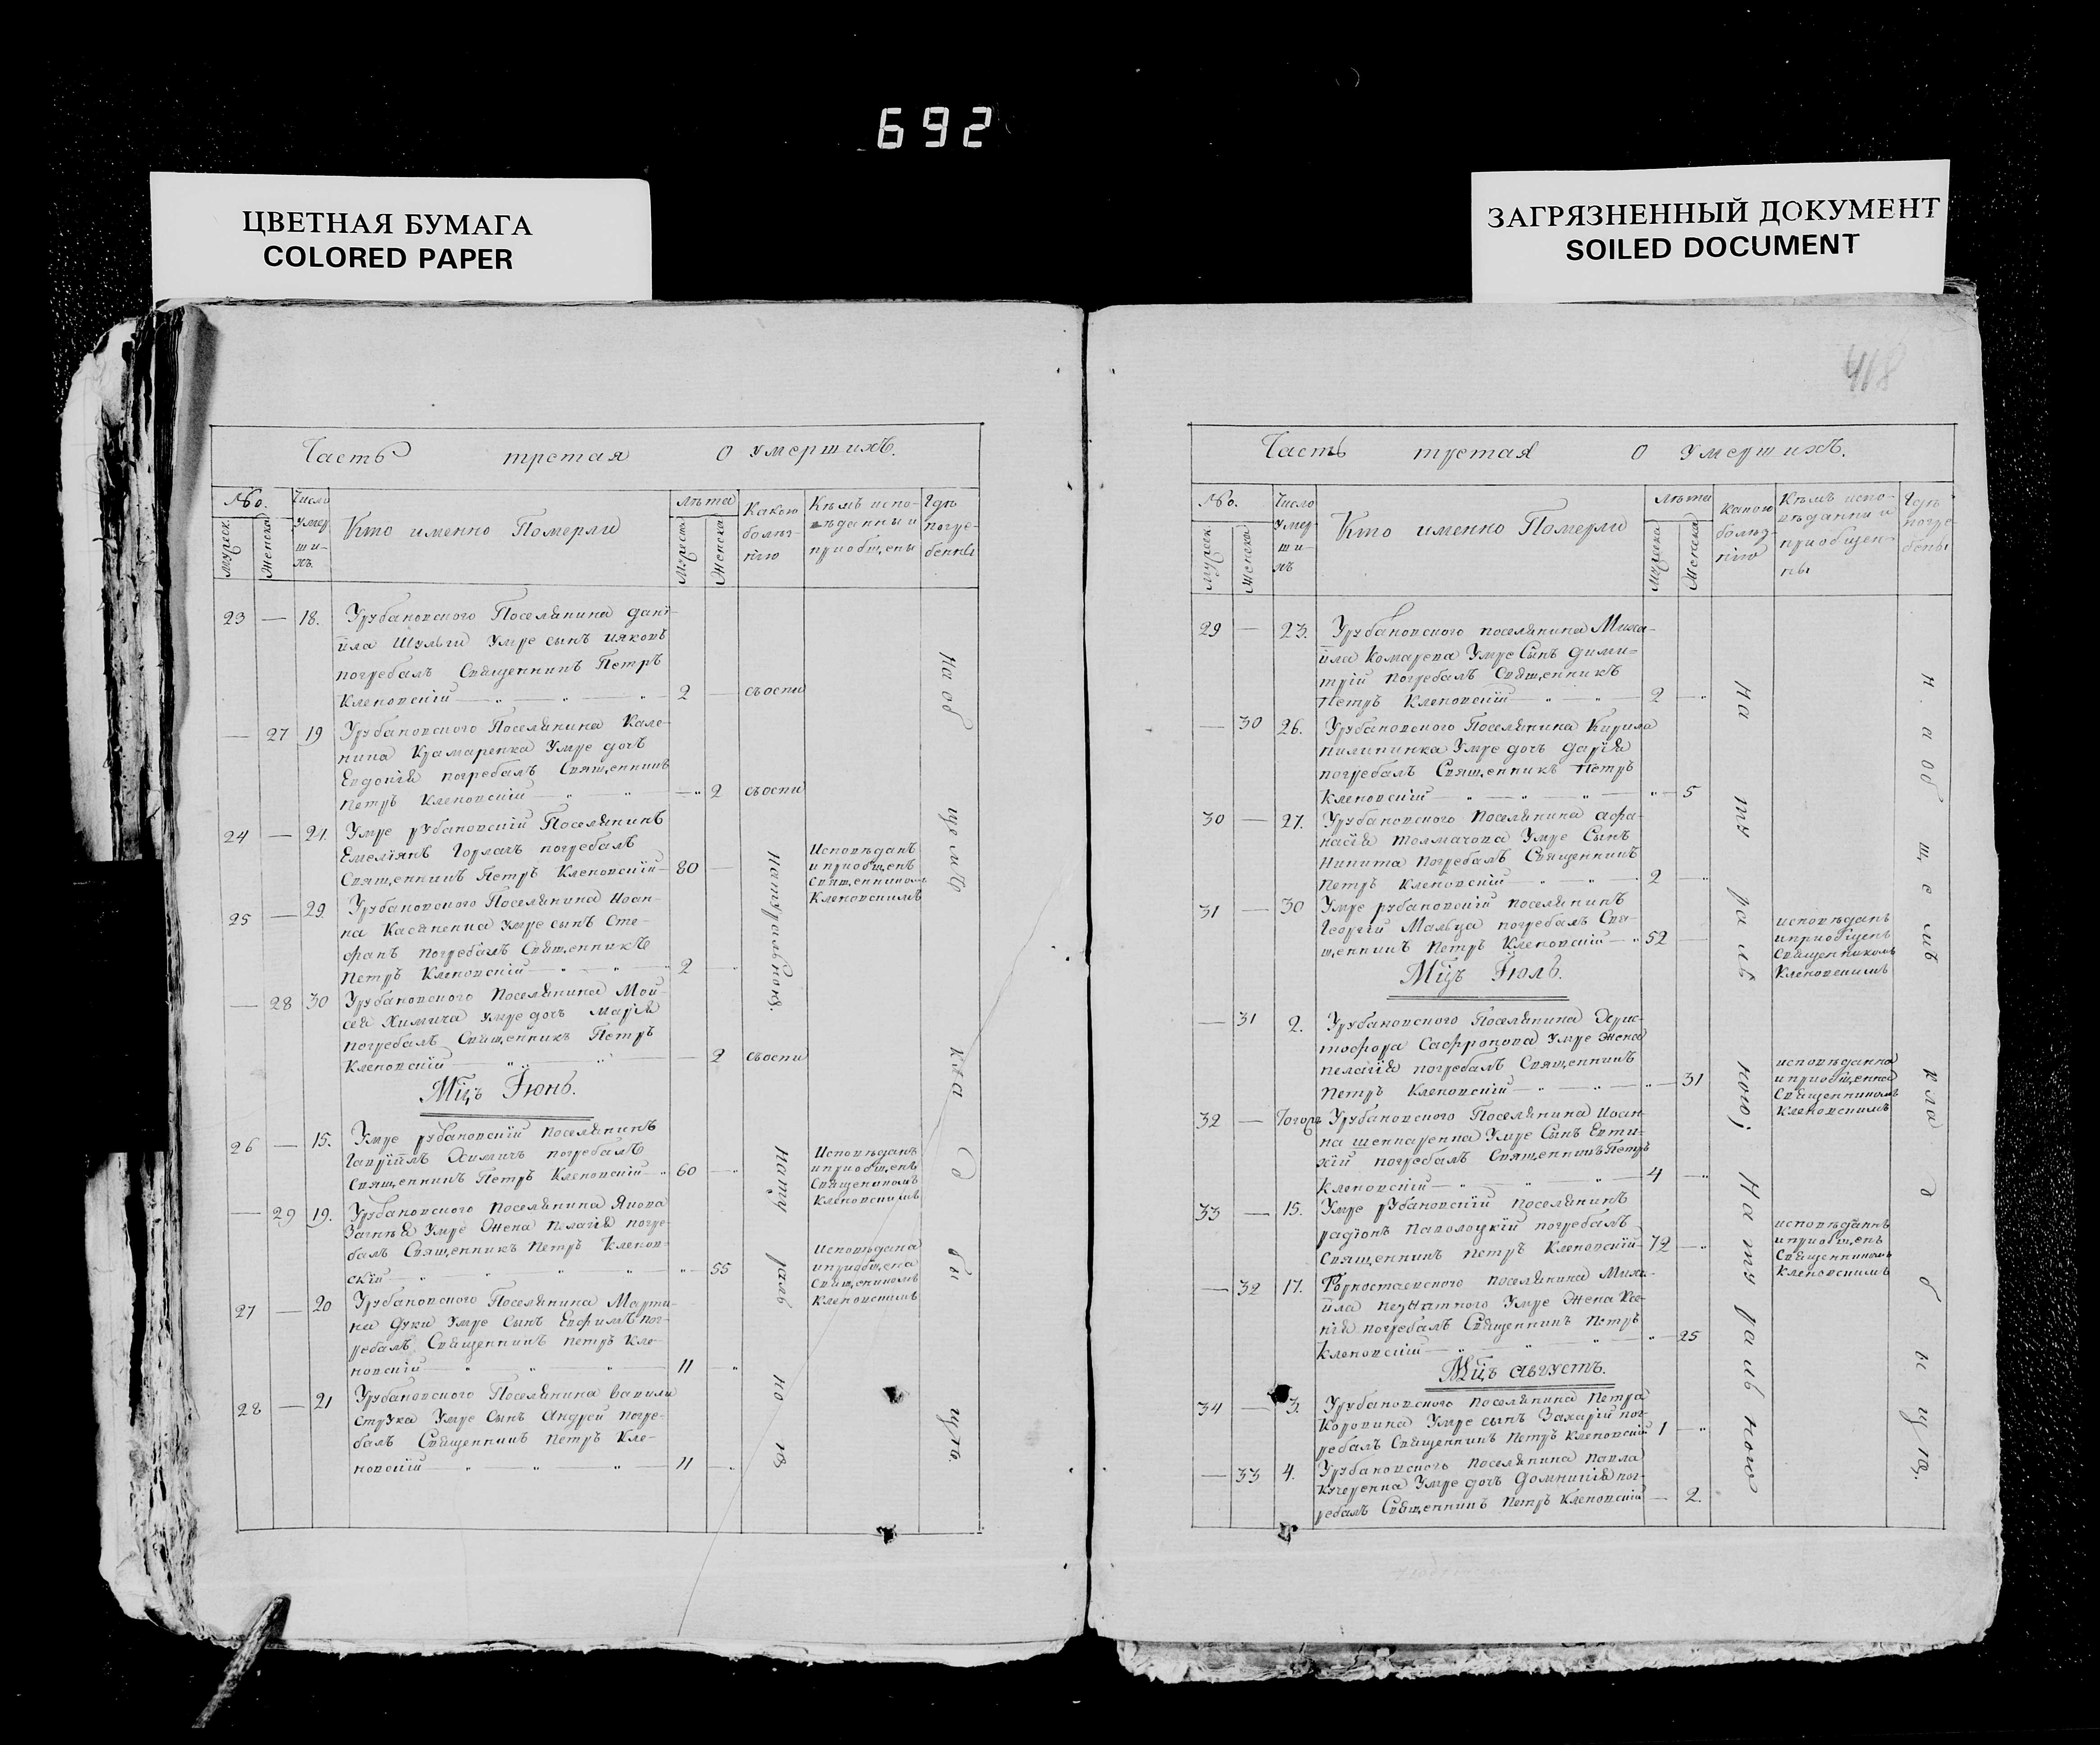 692
ЦВЕТНАЯ БУМАГА
COLORED PAPER
ЗАГРЯЗНЕННЫЙ ДОКУМЕНТ
SOILED DOCUMENT
Часть третая о умерших&#1098;.
№.
Число умер ши- хъ
Кто именно Померли
лѣта
Какою болѣз- нїю
Кѣмъ испо- вѣданны и приобщены
Гдѣ погре- бенны
мужеск.
Женска
Мужеска
Женска
23 — 18. Урубановского Поселянина дані-
йла Шульги Умре сынъ ияковъ
погребалъ Священникъ Петръ
Клеповскій 2 — съоспи
— 27 19 Урубановского Поселянина Кале-
ника Крамаренка Умре дочь
Евдокія погребалъ Священникъ
Петръ Клеповскій — 2 съоспи
24 — 21. Умре рубановскій Поселянинъ
Емеліянъ Горлачъ погребалъ
Священникъ Петръ Клеповскій 80 —
Исповѣданъ
и приобщенъ
Священникомъ
Клеповскимъ
25 — 29 Урубановского Поселянина Иоан-
на Касяненка Умре сынъ Сте-
фанъ погребалъ Священникъ
Петръ Клеповскій 2 —
— 28 30 Урубановского Поселянина Мои-
сея Химича Умре дочь Марія
погребалъ Священникъ Петръ
Клеповскій — 2 съоспи
Мцъ Іюнь.
26 — 15. Умре рубановскій поселянинъ
Гавріилъ Химичъ погребалъ
Священникъ Петръ Клеповскій 60 —
Исповѣданъ
и приобщенъ
Священникомъ
Клеповскимъ
— 29 19. Урубановского Поселянина Якова
Загнѣя Умре Жена Пелагія погре-
балъ Священникъ Петръ Клепов-
скій — 55
Исповѣдана
и приобщена
Священикомъ
Клеповскимъ
27 — 20 Урубановского Поселянина Марти-
на Дуки Умре сынъ Евфимъ пог-
ребалъ Священникъ Петръ Кле-
повскій 11 —
28 — 21 Урубановского Поселянина вавили
Струка Умре Сынъ Андрей погре-
балъ Священникъ Петръ Кле-
повскій 11 —
Натуральною.
На об щомъ кла д би щѣ.
418
Часть третая о умерших&#1098;.
№.
Число умер- ши- хъ
Кто именно Померли
лѣта
какою болѣз- нію
Кѣмъ испо- вѣданни и приобщен- ны
Гдѣ погре- бены
мужеск
Женска
Мужеска
Женска
29 — 23. Урубановского поселянина Миха-
йла Комарева Умре Сынъ дими-
трій погребалъ Священникъ
Петръ Клеповскій 2 —
— 30 26. Урубановского Поселянина Кирила
пилипинка Умре дочь дарія
погребалъ Священникъ Петръ
Клеповскій — 5
30 — 27. Урубановского поселянина афа-
насія толмачова Умре Сынъ
Никита погребалъ Священникъ
Петръ Клеповскій 2 —
31 — 30 Умре рубановскій поселянинъ
Георгій Мальца погребалъ Свя-
щенникъ Петръ Клеповскій 52 —
исповѣданъ
и приобщенъ
Священикомъ
Клеповскимъ
Мцъ Іюль.
— 31 2. Урубановского Поселянина Хрис-
тофора Сафронова Умре Жена
пелагія погребалъ Священникъ
Петръ Клеповскій — 31
исповѣданна
и приобщенна
Священникомъ
Клеповскимъ
32 — Тогожъ Урубановского Поселянина Иоан-
на шеппаренка Умре Сынъ Евти-
хій погребалъ Священникъ Петръ
Клеповскій 4 —
33 — 15. Умре рубановскій поселянинъ
радіонъ паволоцкій погребалъ
Священникъ Петръ Клеповскій 72 —
исповѣданъ
и приобщенъ
Священникомъ
Клеповскимъ
— 32 17. Горностаевского поселянина Миха-
йла незнатного Умре Жена Ксе-
нія погребалъ Священникъ Петръ
Клеповскій — 25
Мцъ августъ.
34 — 3. Урубановского поселянина Петра
Коровина Умре сынъ Захарій пог-
ребалъ Священникъ Петръ Клеповскій 1 —
— 33 4. Урубановского поселянина павла
Кучеренка Умре дочь Домникія пог-
ребалъ Священникъ Петръ Клеповскій — 2.
На ту раль ною
На ту раль ною
На об щемъ кла д б и щѣ.